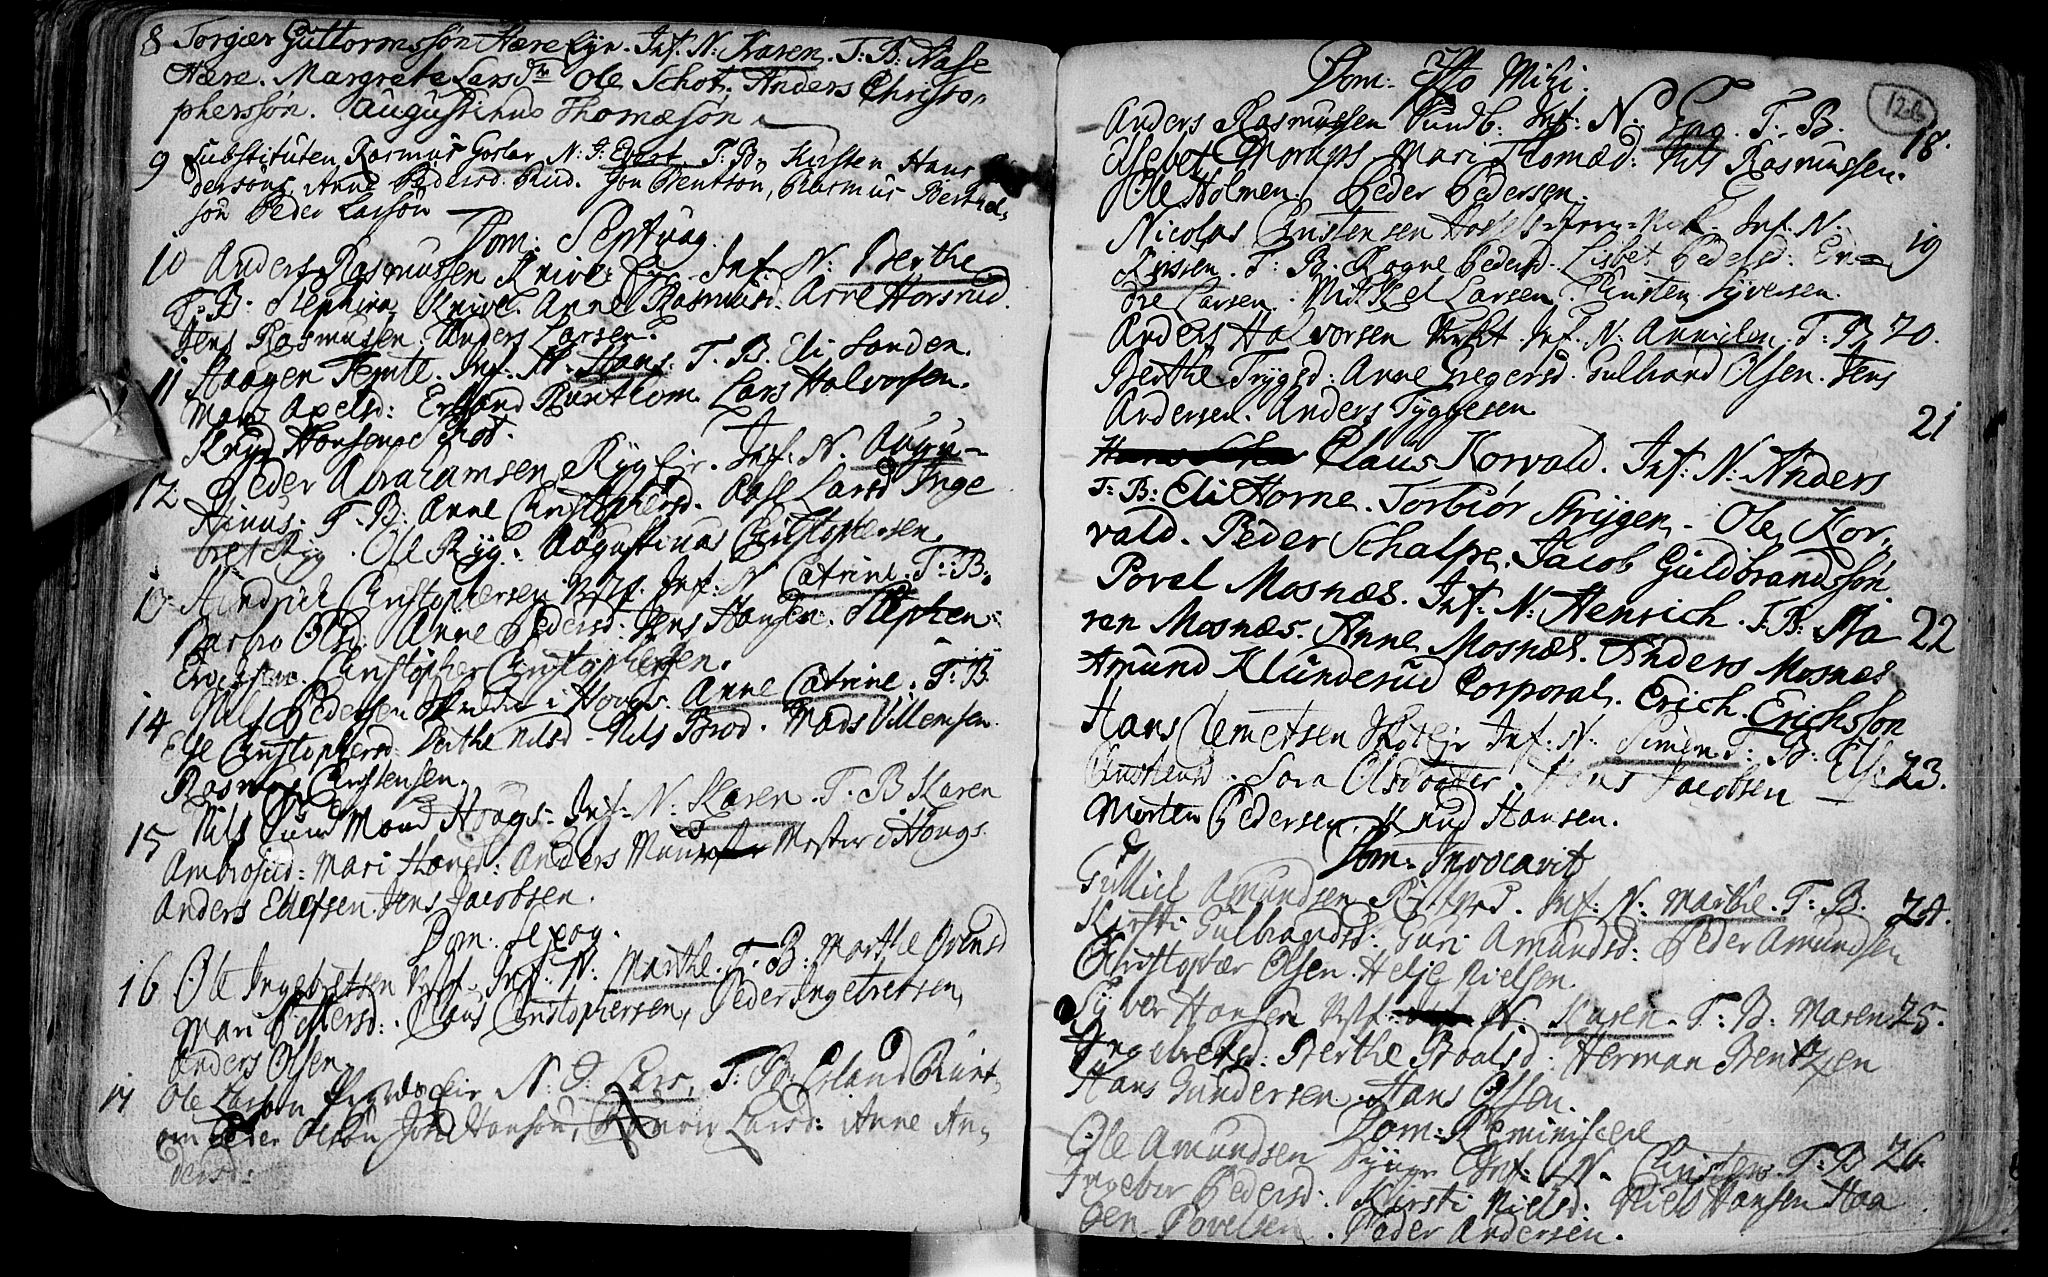 8 Torgier Guttormssøn Hære Eyn. Inf. N: Karen. T: B: Aase
Hære. Margrete Larsd. Ole Schot. Anders Christo,
phersson. Augustinus Thomæsøn
9 Substituten Rasmus Goslar N: J: Evart. T: B: Kirsten Hans
dersøns Anne Pedersd. Rud. Jon Bentsøn, Rasmus Berthel,
søn Peder Larsøn
Dom. Septuag.
10 Anders Rasmussen Knive. Inf. N: Berthe
T: B: Stephina Knive. Anne Rasmusd. Arne Horsrud.
Jens Rasmusen. Anders Larsen.
11 Haagen Temte. Inf. N. Hans. T. B. Eli Sanden.
Mari Axelsd: Erland Runthom. Lars Halvorsen.
Knud Hansen Schot.
12 Peder Abrahamsen Ryg Eir. Inf. N. Augu-
stinus. T. B: Anne Christophersd. Aase Larsd Inge
bret Ryg. Ole Ryg. Augustinus Christophersen.
13 Hindrich Christophersen Vestf. Inf. N Catrine. T: B.
Barbro Olsd: Anne Pedersd: Jens Hansen. Stephen
Erichsen. Christopher Christophersen.
14 Nils Pedersen i Hougs. Anne Catrine. T: B
Else Christophersd. Berthe Nilsd - Nils Brod. Mads Villemsen.
Rasmus Christensen.
15 Nils Sund Hougs: Inf: N: Karen. T. B Karen
Ambrosid: Mari Hansd: Anders Mester i Hougs.
Anders Ellefsen. Jens Jacobsen.
Dom. Sexag.
16 Ole Ingebretsen Vestf. Inf: N: Marthe. T. B: Marthe Orensd
Mari Pedersd: Claus Christophersen, Peder Ingebretsen,
Anders Olsen.
17 Ole Larsøn Eir N: J: Lars, T: B: Erland Runt,
om Peder Olsøn Jon Hansøn, Larsd: Anne An,
dersd:
126
Dom: Esto Mihi.
Anders Rasmussen Sundb: Inf: N: Eng. T. B. 18.
Elsebet Morups Mari Thomæd: Nils Rasmussen.
Ole Holmen. Peder Pedersen.
Nicolas Christensen Inf. N. 19
Nissen. T: B. Rogne Pedersd. Lisbet Pedersd: En=
dre Larsen. Mikkel Larsen. Christen Syversen.
Anders Halvorsen Vestf. Inf. N. Annichen. T: B 20.
Berthe Trygsd: Anne Gregersd. Gulbrand Olsen. Jens
Andersen. Anders Tyggesen
Claus Korvald. Inf: N: Anders 21
T: B: Eli Horne. Torbiør Strygen - Ole Kor,
vald. Peder Schalpe. Jacob Guldbrandssøn.
Povel Mosnæs. Inf: N: Henrich. T: B: Ma 22
ren Mosnæs. Anne Mosnæs. Anders Mosnæs
Amund Klunderud Corporal. Erich Erichssøn
Hans Clemetsen Skot Eir Inf: N: Simen. T: B: Else 23.
Christensd. Sara Olsdaater. Hans Jacobsen -
Morten Pedersen. Knud Hansen.
Dom. Invocavit
Gullich Amundsen Inf: N: Marthe. T: B. 24.
Kirsti Gulbrandsd: Guri Amundsd: Peder Amundsen
Christopher Olsen. Helje Nielsen.
Syver Hansen Vestf: N. Karen. T: B: Maren 25.
Ingebretsd. Berthe Poalsd: Herman Bentzen
Hans Gundersen. Hans Olsen.
Dom: Reminiscere
Ole Amundsen Inf: N. Christen. T: B 26.
Ingebor Pedersd: Kirsti Nielsd: Niels Hansen Haa
gen Povelsen. Peder Andersen.